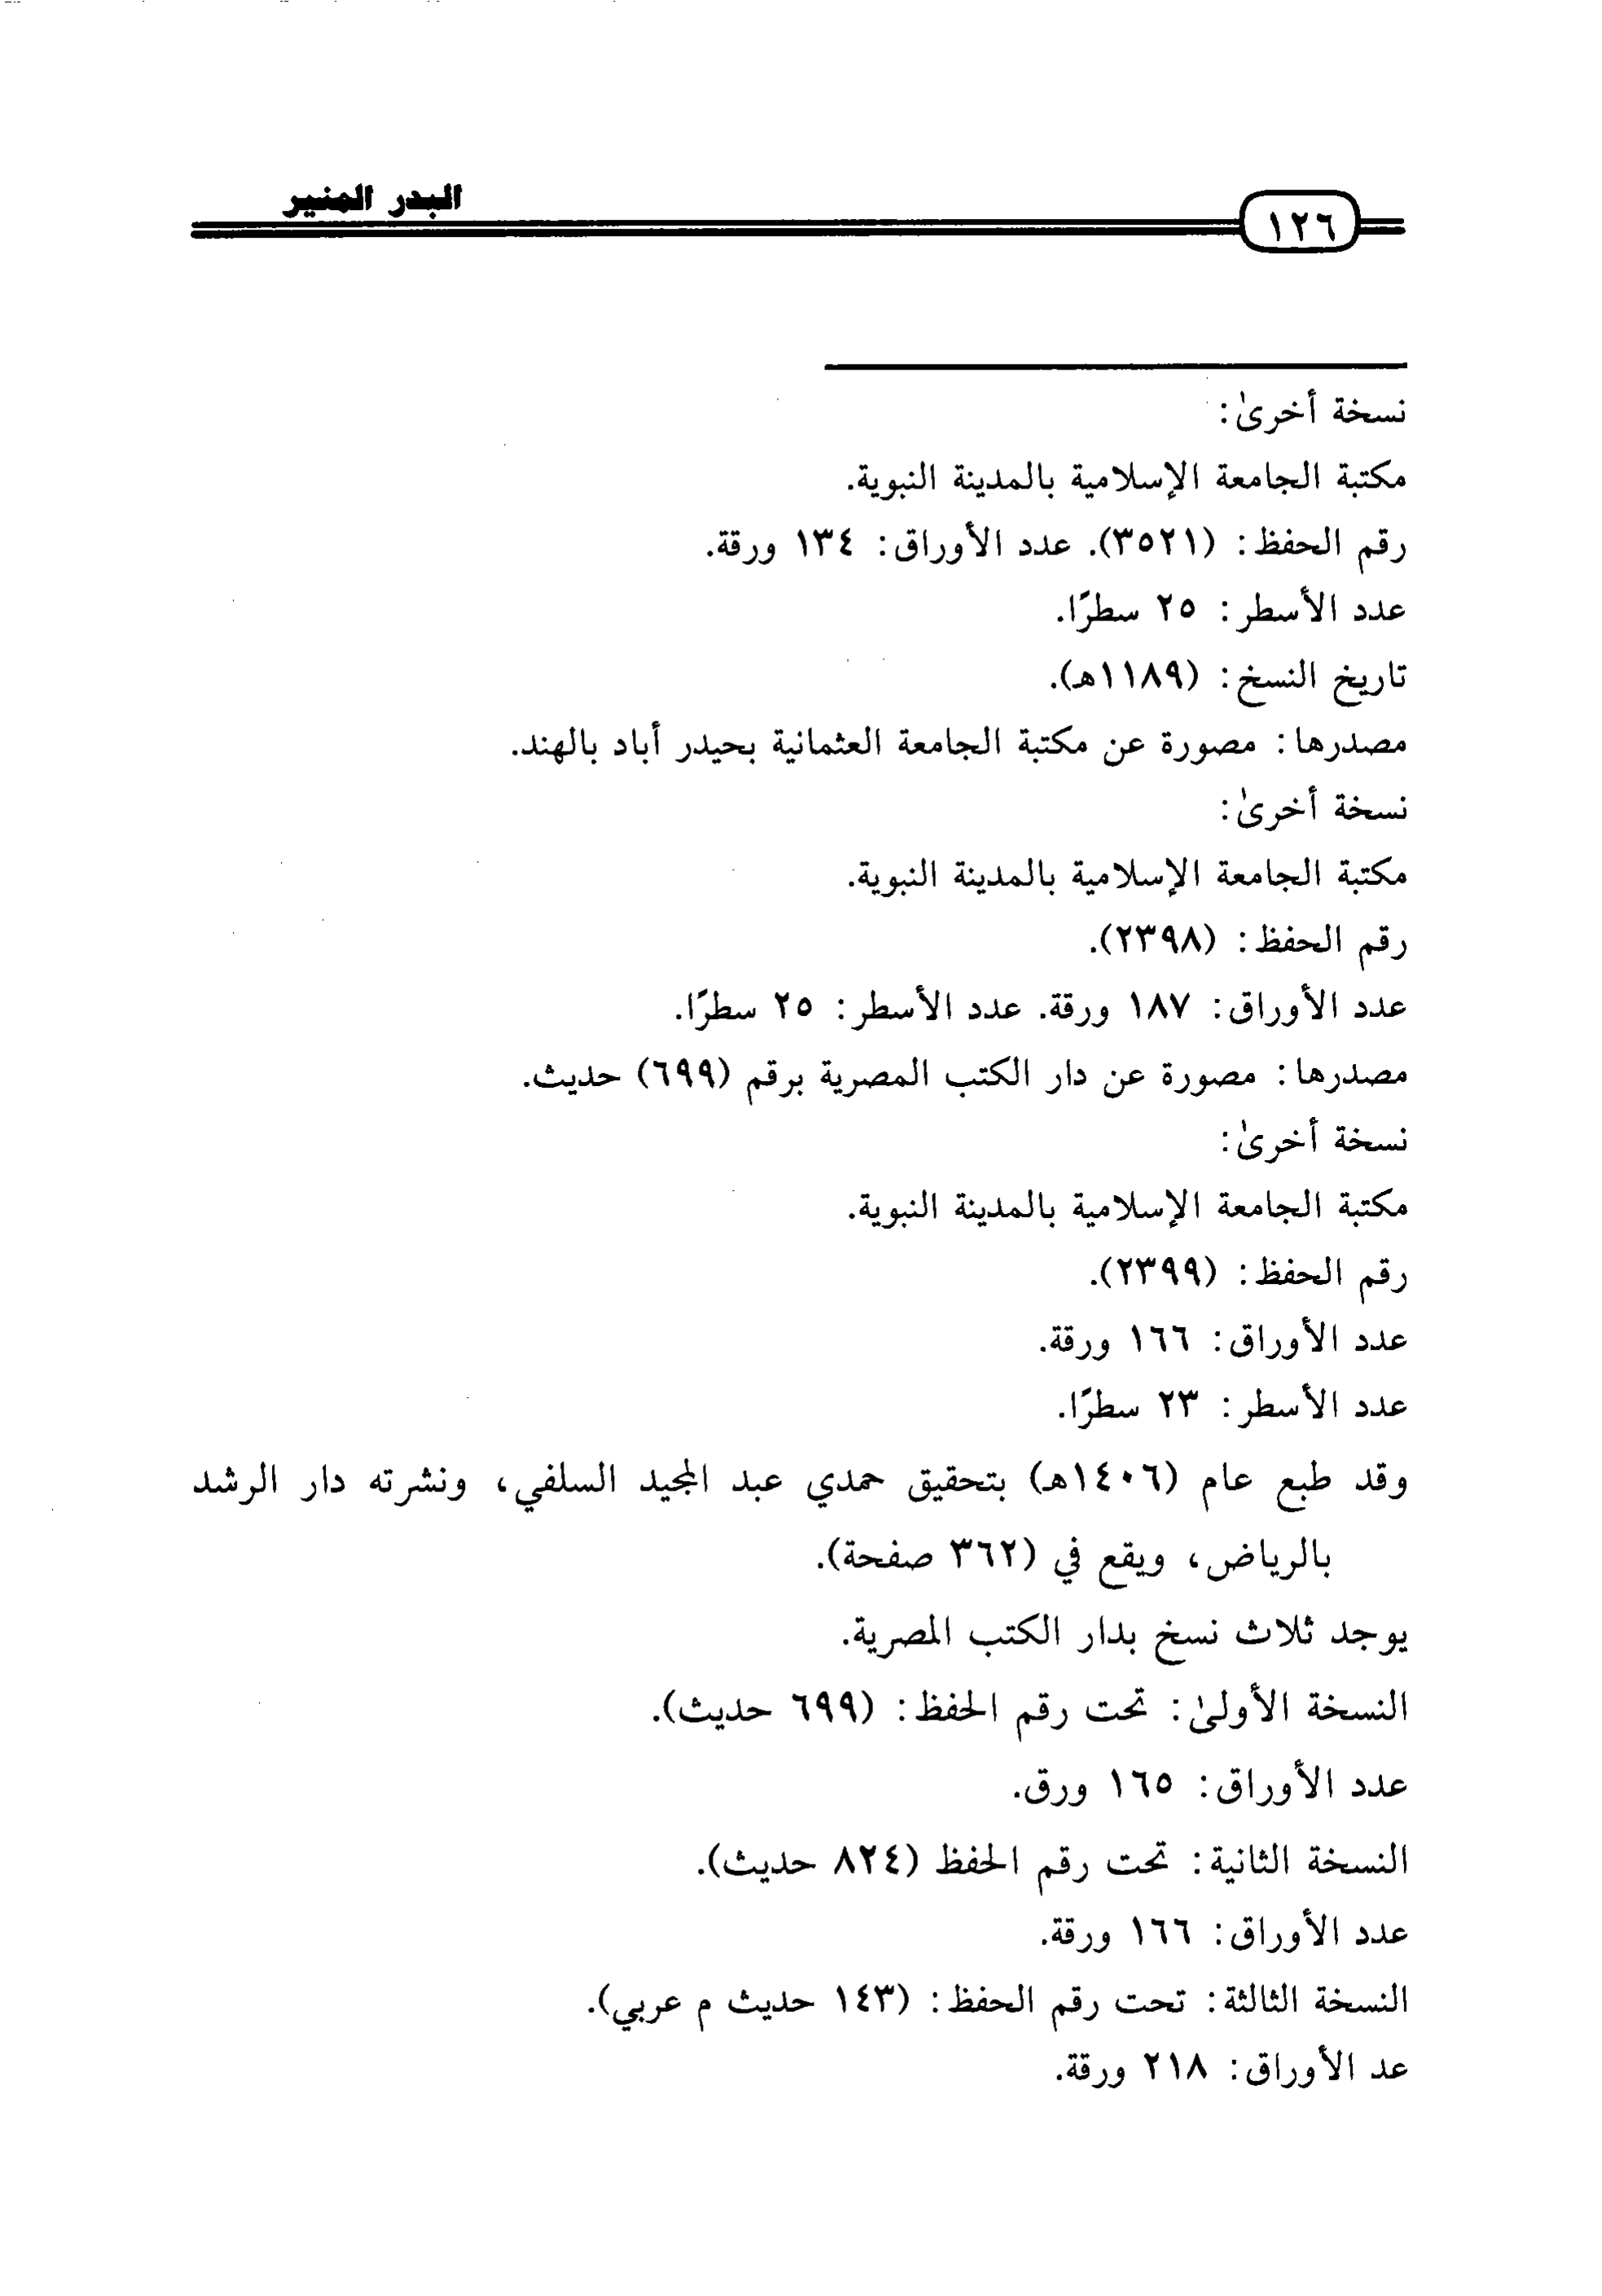 ١٢٦ البدر المنير
نسخة أخرىٰ:
مكتبة الجامعة الإسلامية بالمدينة النبوية.
رقم الحفظ: (٣٥٢١). عدد الأوراق: ١٣٤ ورقة.
عدد الأسطر: ٢٥ سطرًا.
تاريخ النسخ: (١١٨٩هـ).
مصدرها: مصورة عن مكتبة الجامعة العثمانية بحيدر أباد بالهند.
نسخة أخرىٰ:
مكتبة الجامعة الإسلامية بالمدينة النبوية.
رقم الحفظ: (٢٣٩٨).
عدد الأوراق: ١٨٧ ورقة. عدد الأسطر: ٢٥ سطرًا.
مصدرها: مصورة عن دار الكتب المصرية برقم (٦٩٩) حديث.
نسخة أخرىٰ:
مكتبة الجامعة الإسلامية بالمدينة النبوية.
رقم الحفظ: (٢٣٩٩).
عدد الأوراق: ١٦٦ ورقة.
عدد الأسطر: ٢٣ سطرًا.
وقد طبع عام (١٤٠٦هـ) بتحقيق حمدي عبد المجيد السلفي، ونشرته دار الرشد
بالرياض، ويقع في (٣٦٢ صفحة).
يوجد ثلاث نسخ بدار الكتب المصرية.
النسخة الأولىٰ: تحت رقم الحفظ: (٦٩٩ حديث).
عدد الأوراق: ١٦٥ ورق.
النسخة الثانية: تحت رقم الحفظ (٨٢٤ حديث).
عدد الأوراق: ١٦٦ ورقة.
النسخة الثالثة: تحت رقم الحفظ: (١٤٣ حديث م عربي).
عد الأوراق: ٢١٨ ورقة.